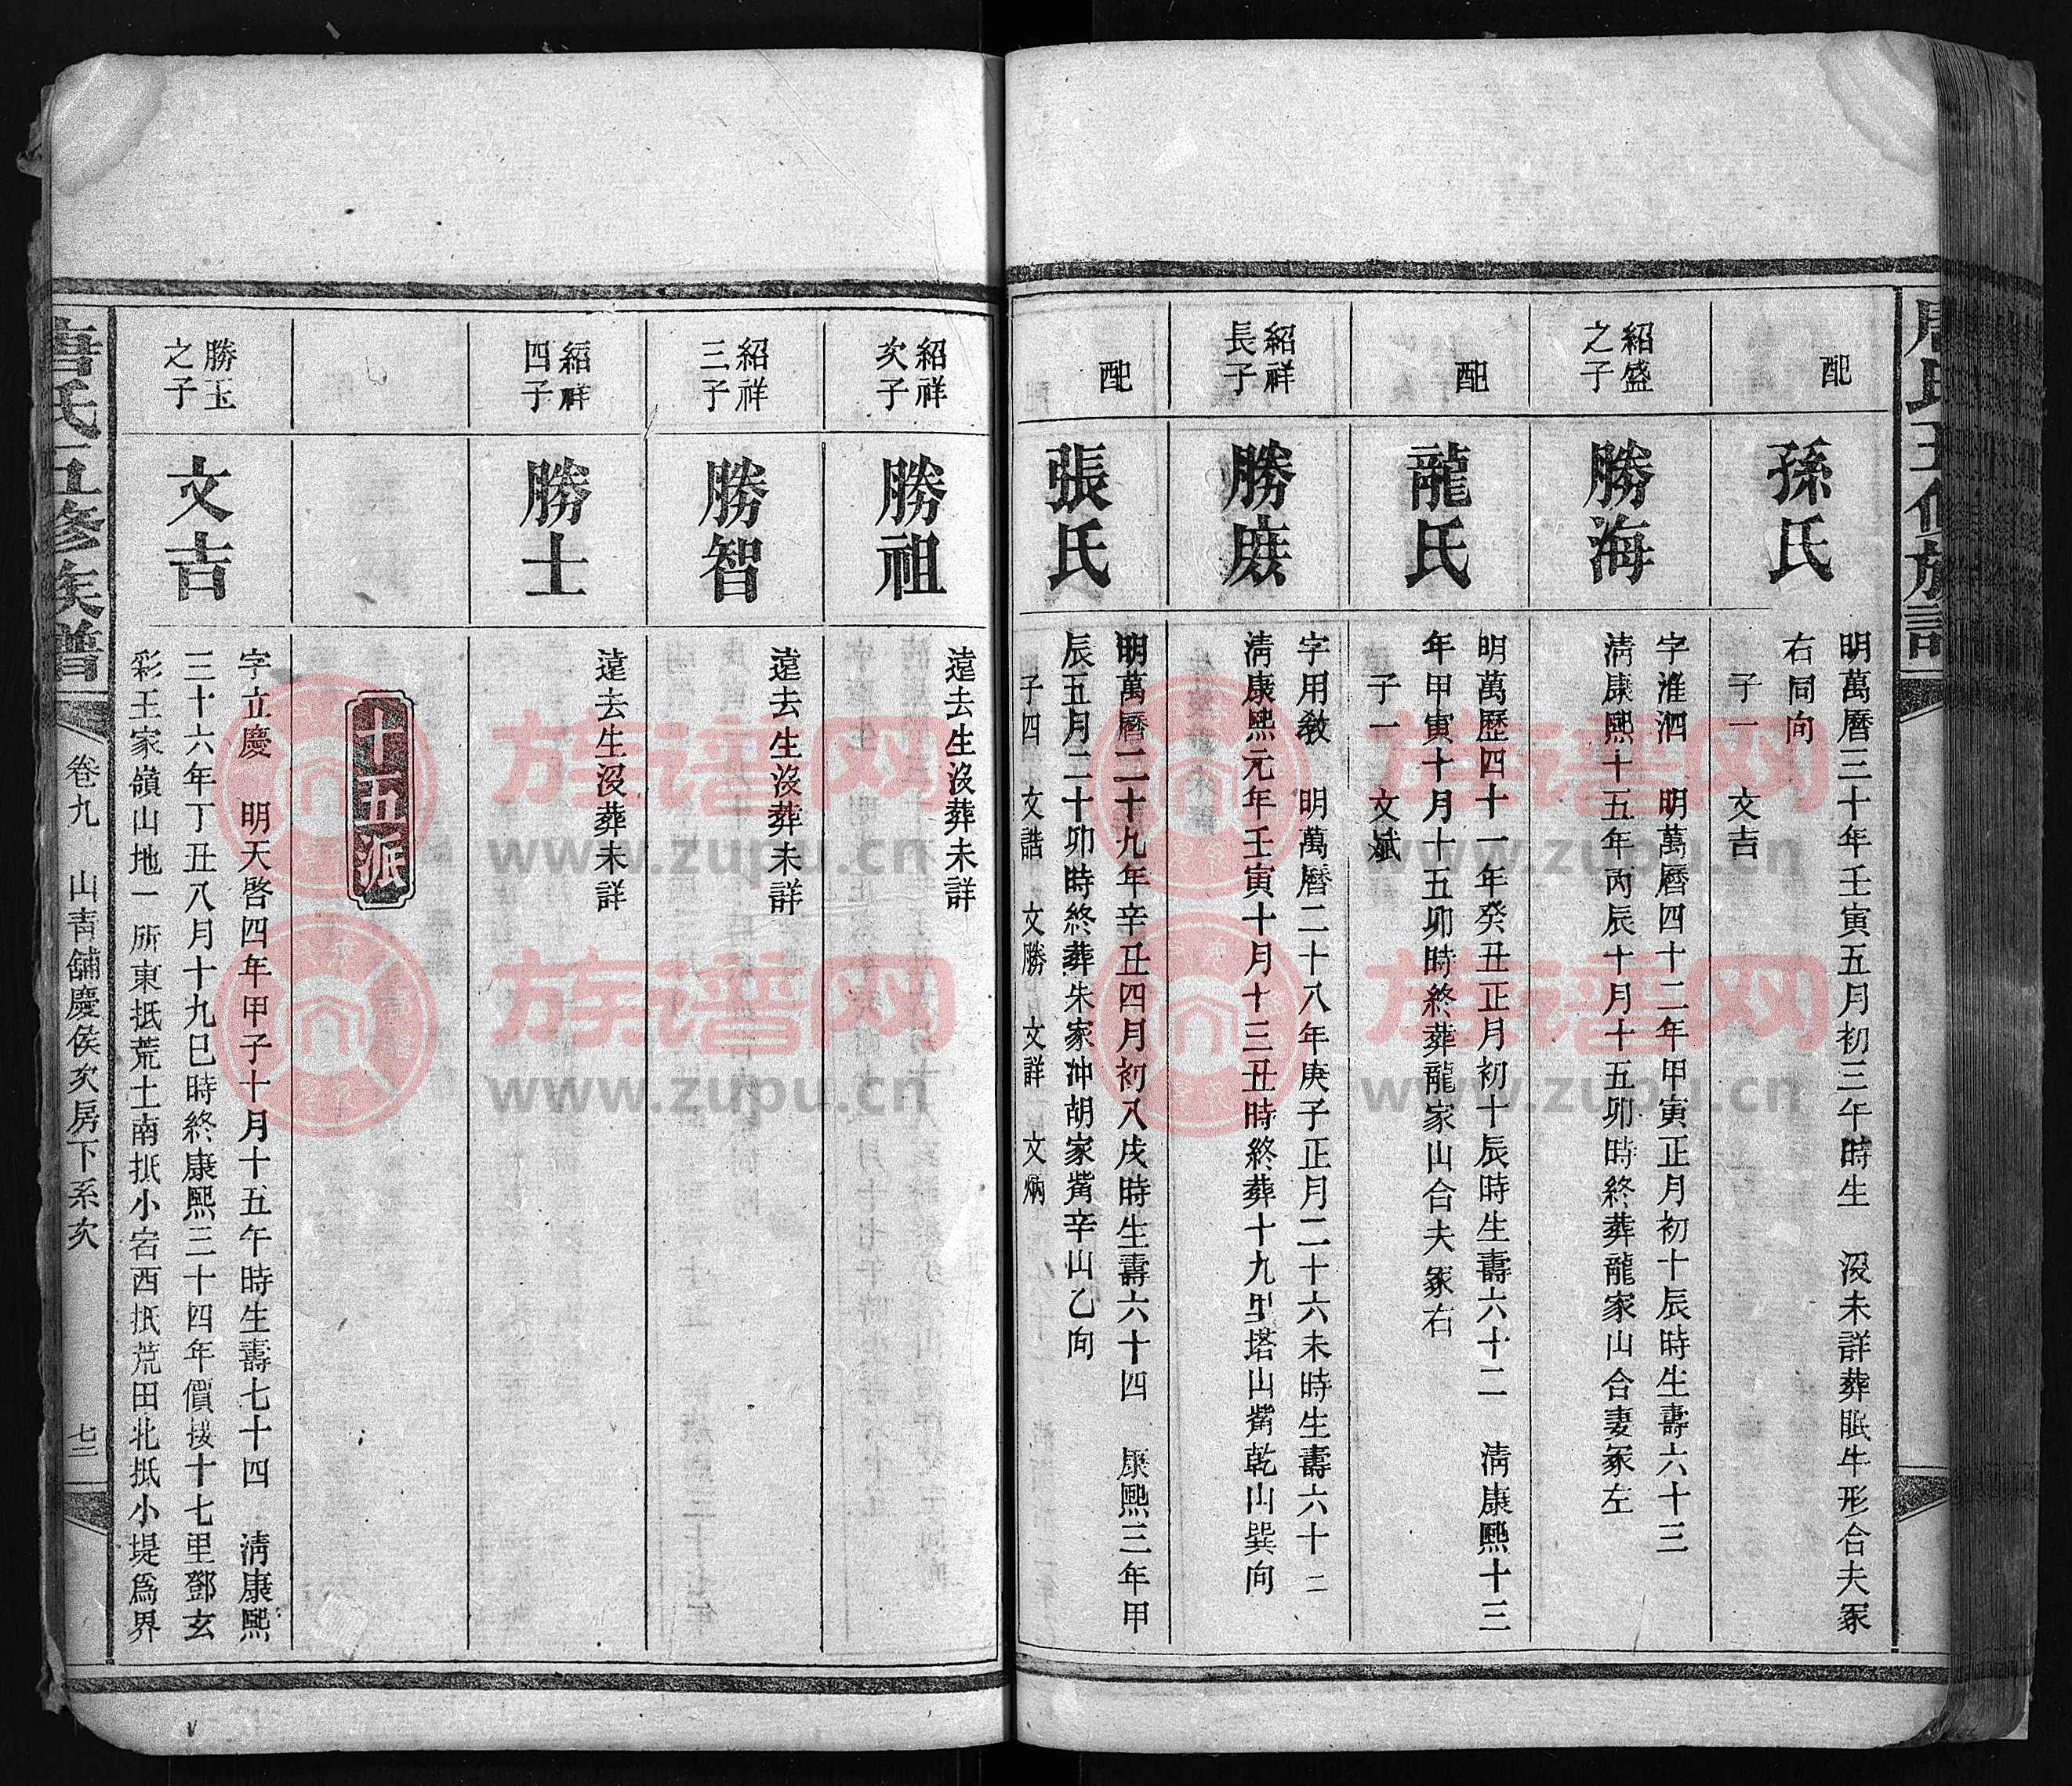 唐氏五修族譜
配
孫氏
明萬曆三十年壬寅五月初三午時生 沒未詳葬眠牛形合夫冢
右同向
子一 文吉
紹盛
之子
勝海
字淮泗 明萬曆四十二年甲寅正月初十辰時生壽六十三
淸康熙十五年丙辰十月十五卯時終葬龍家山合妻冢左
配
龍氏
明萬歷四十一年癸丑正月初十辰時生壽六十二 淸康熙十三
年甲寅十月十五卯時終葬龍家山合夫冢右
子一 文斌
紹祥
長子
勝庶
字用敎 明萬曆二十八年庚子正月二十六未時生壽六十二
淸康熙元年壬寅十月十三丑時終葬十九里塔山觜乾山巽向
配
張氏
明萬曆二十九年辛丑四月初八戌時生壽六十四 康熙三年甲
辰五月二十卯時終葬朱家沖胡家觜辛山乙向
子四 文誥 文勝 文詳 文炳
紹祥
次子
勝祖
遠去生沒葬未詳
紹祥
三子
勝智
遠去生沒葬未詳
紹祥
四子
勝士
遠去生沒葬未詳
十五派
勝玉
之子
文吉
字立慶 明天啓四年甲子十月十五午時生壽七十四 淸康熙
三十六年丁丑八月十九巳時終康熙三十四年價接十七里鄧玄
彩王家嶺山地一所東抵荒土南抵小宕西抵荒田北抵小堤爲界
唐氏五修族譜
卷九 山青舖慶侯次房下系次
七二
族谱网
www.zupu.cn
族谱网
www.zupu.cn
族谱网
www.zupu.cn
族谱网
www.zupu.cn